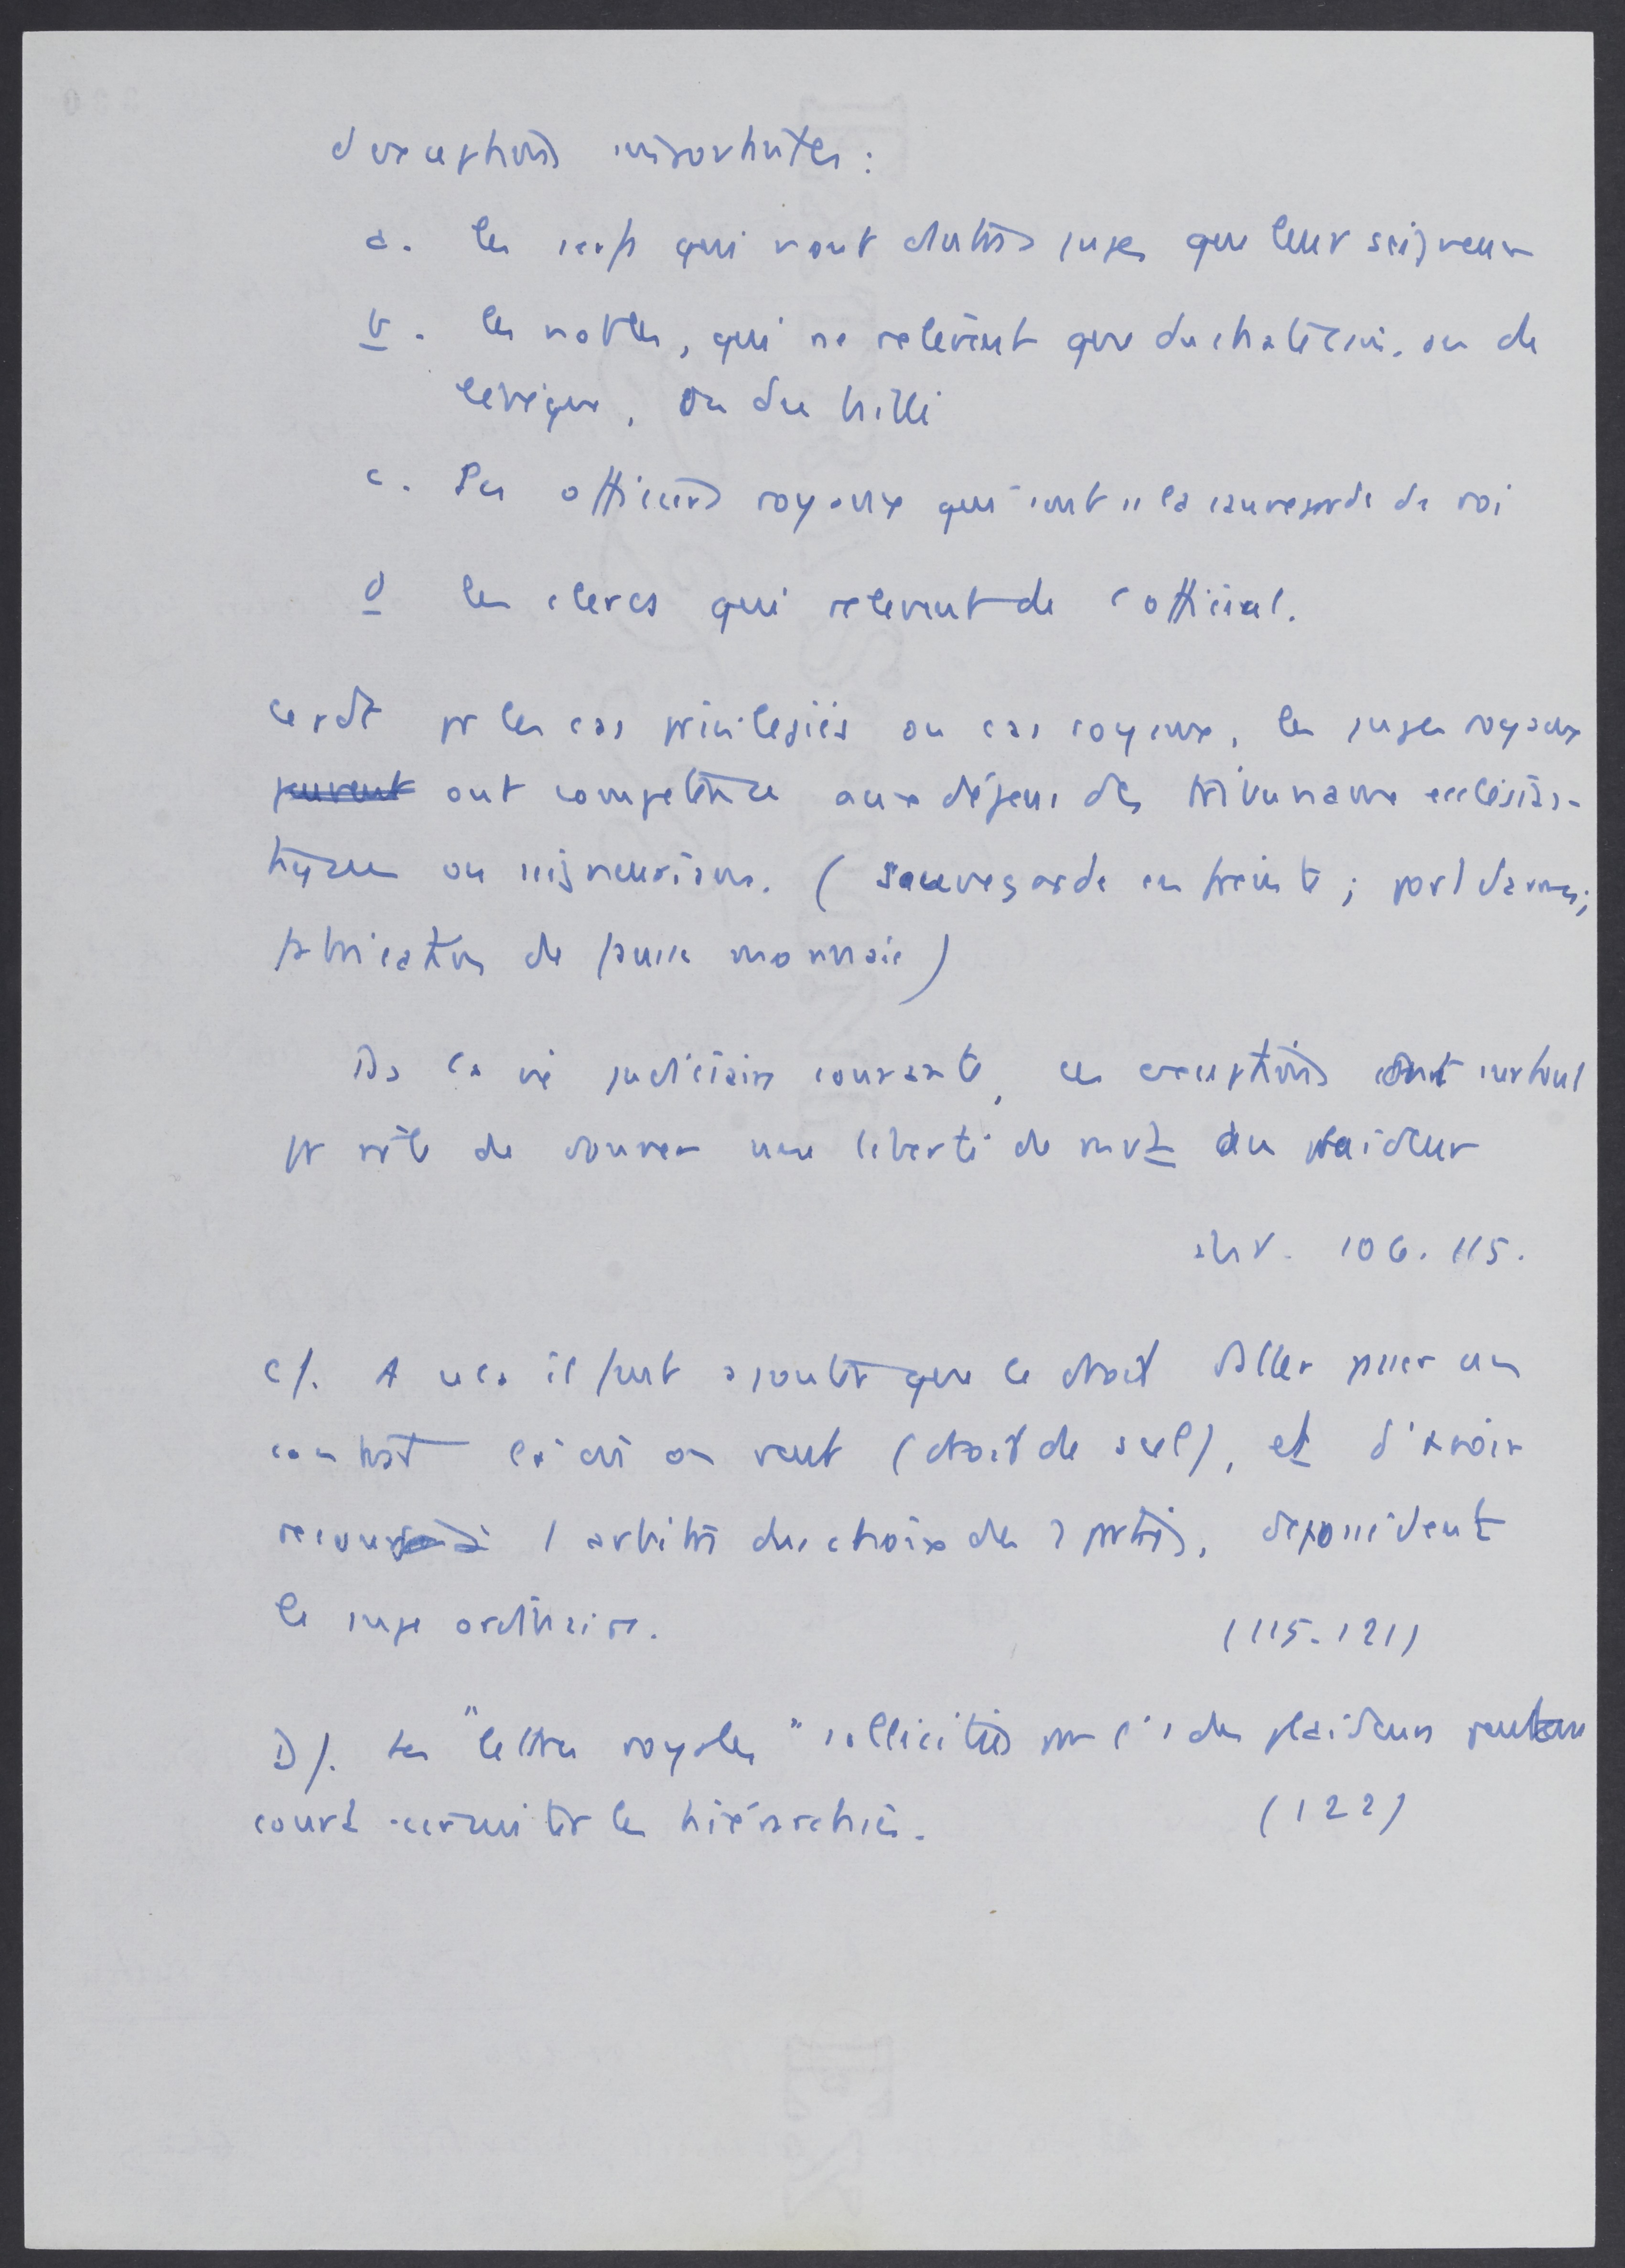 d'exceptions importantes :
a. les serfs qui n'ont d'autres juges que leur seigneur
b. les nobles, qui ne relèvent que du chatelain, ou de
l'évêque, ou du bailli
c. Les officiers royaux qui sont ss la sauvegarde du roi
d les clercs qui relèvent de l'official.
pr les cas privilégiés ou cas royaux, les juges royaux
peuvent ont compétence aux dépens des tribunaux ecclésias-
tiques ou seigneuriaux. (sauvegarde enfreinte ; port d'armes ;
fabrication de fausse monnaie)
Ds la vie judiciaire courante, ces exceptions ont surtout
pr rôle de donner une liberté de mvt au plaideur
106. 115.
C/. A cela il faut ajouter que le droit d'aller passer un
contrat là où on veut (droit de scel), et d'avoir
recours à l'arbitre du choix des 2 parties, dépossèdent
le juge ordinaire.
(115-121)
D/. Les "lettres royales" sollicitées par l'1 des plaideurs peuvent
court-circuiter les hiérarchies.
(122)